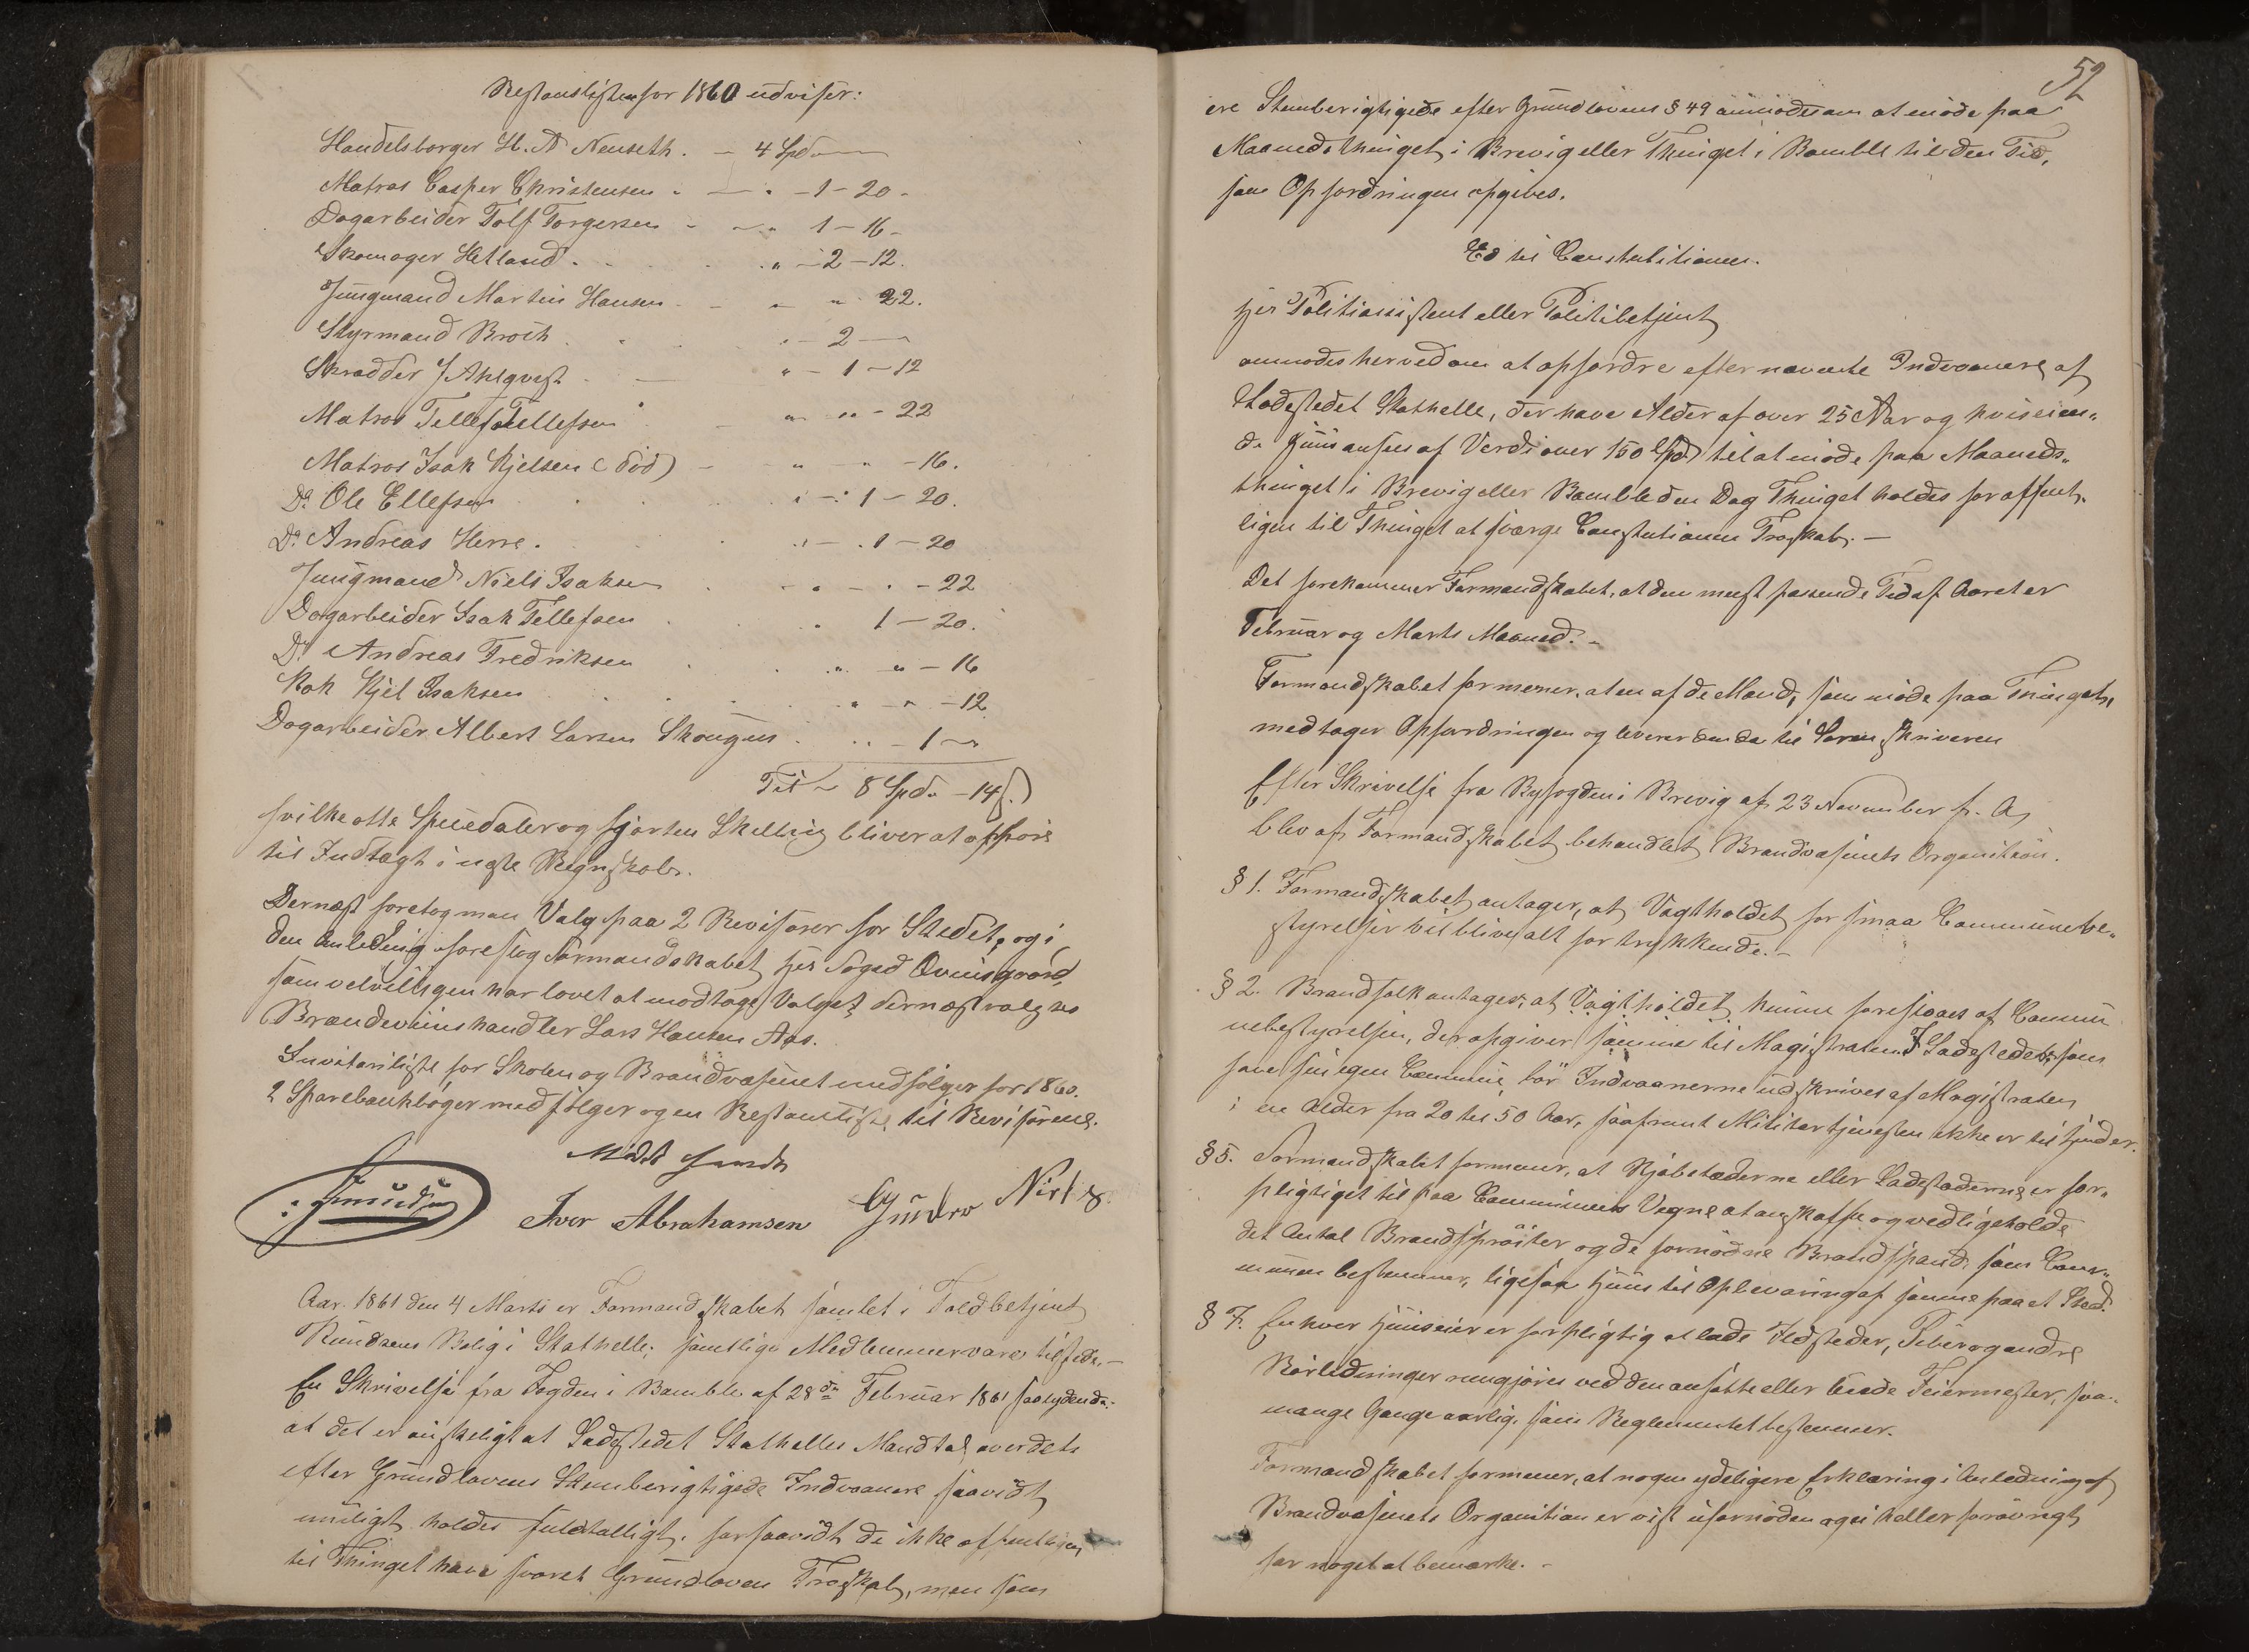 Restanslisten for 1860 udviser:
Handelsborger H. A Neuseth. — 4 Spd. —
Matros Casper Christensen - — " - 1 - 20 -
Dagarbeider Tolf Torgersen - — " 1 - 16 -
Skomager Hetland . . . " - 2 - 12.
Jungmand Martin Hansen - - " 22.
Styrmand Broch . . . " - 2 —
Skradder J Ahlqvest - — " - 1 - 12
Matros Tellef Tellefsen - " " - 22
Matros Isak Kjelsen (död) - " - " - 16.
Do. Ole Ellefsen . . . " - 1 - 20.
Do. Andreas Herre . . . " - 1 - 20
Jungmand Niels Isaksen . - " - " - 22
Dagarbeider Isak Tellefsen . . " 1 - 20.
Do. Andreas Fredriksen . . " " - 16
Kok Kjel Isaksen . . . " - " - 12
Dagarbeider Albert Larsen Skougen . . " - 1 - "
Til ~ 8 Spd. - 14 s.)
hvilke otte Speciedaler og fjorten Skelling bliver at opföre
til Indtægt i neste Regnskab.
Dernæst foretog man Valg paa 2 Revisorer for Stedet, og i
den Anledning foreslog Formandskabet Hr Foged Qvinsgaard,
som velvilligen har lovet at modtage Valget, dernæst valgtes
Brændeviinshandler Lars Hansen Aas.
Inventariliste for Skolen og Brandvæsenet medfölger for 1860.
2 Sparebankböger medfölger og en Restantliste til Revisorene.
Knudsen
Iver Abrahamsen Gunder Nirls.
Aar. 1861 den 4 Marts er Formandskabet samlet i Toldbetjent
Knudsens Bolig i Stathelle; samtlige Medlemmer vare tilstede. —
En Skrivelse fra Fogden i Bamble af 28de Februar 1861 saalydende:
at det er önskeligt at Ladestedet Stathelles Mandtal over dets
efter Grundlovens Stemberigtigede Indvaanere saavidt
muligt holdes fuldtalligt, forsaavidt de ikke offentligen
til Thinget have svoret Grundloven Troskab, men som
52
ere Stemberigtigede efter Grundlovens § 49 anmodes om at möde paa
Maanedsthinget i Brevig eller Thinget i Bamble til den Tid,
som Opfordringen opgives.
Ed til Constutitionen.
Her Politiassistent eller Politibetjent
anmodes herved om at opfordre efternævnte Indvaanere af
Ladestedet Stathelle, der have Alder af over 25 Aar og hviseien-
de Huus ansees af Verdi over 150 Spd. til at möde paa Maaneds-
thinget i Brevig eller Bamble den Dag Thinget holdes for offent-
ligen til Thinget at sværge Constutionen Troskab. —
Det forekommer Formandskabet, at den meest passende Tid af Aaret er
Februar og Marts Maaned. -
Formandskabet formener, at en af de Mænd, som möde paa Thinget,
medtager Opfordringen og leverer denne til Sorenskriveren
Efter Skrivelse fra Byfogden i Brevig af 23 November f. A,
blev af Formandskabet behandlet Brandvæsenets Organition.
§ 1. Formandskabet antager, at Vagtholdet for smaa Communebe-
styrelser vil blive alt for trykkende. -
§ 2. Brandfolk antages, at Vagtholdet kunne foreslaaes af Commu-
nebestyrelsen, der opgiver samme til Magistraten. I Ladestedet, som
have sin egen Commune bör Indvaanerne udskrives af Magistraten
i en Alder fra 20 til 50 Aar, saafremt Militærtjenesten ikke er til hinder.
§ 5. Formandskabet formener, at Kjöbstæderne eller Ladestæderne er for-
pligtiget til paa Communens Vegne at anskaffe og vedligeholde
det Antal Brandspröiter og de fornödne Brandspand som Com-
munen bestemmer, ligesaa Huus til Opbevaring af samme paa et Sted.
§ 7. Enhver Huuseier er forpligtig at lade Ildsteder, Piber og andre
Rörledninger rengjöres ved den ansatte eller leiede Feiermester, saa-
mange Gange aarlig, som Reglementet bestemmer.
Formandskabet formener, at nogen ydeligere Erklæring i Anledning af
Brandvæsenets Organition er vist ufornöden og ei heller forövrigt
har noget at bemærke. -